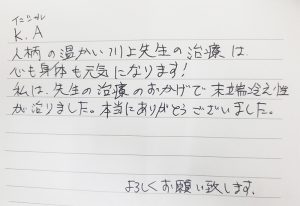 イニシャル
K.A
人柄の温かい川上先生の治療は
心も身体も元気になります!
私は、先生の治療のおかげで末端冷え性
が治りました。本当にありがとうございました。
よろしくお願い致します.